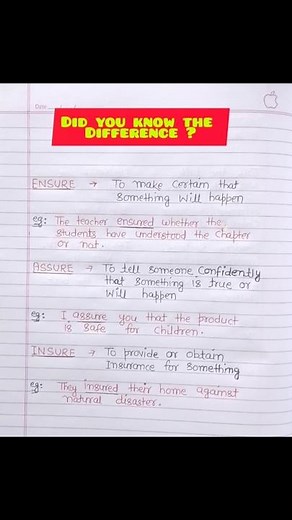 DID YOU KNOW THE
DIFFERENCE ?
Date
ENSURE → To make certain that
something will happen
eg: The teacher ensured whether the
students have understood the chapter
or not.
ASSURE → To tell someone confidently
that something is true or
will happen
eg: I assure you that the product
is safe for children.
INSURE → To provide or obtain
insurance for something
eg: They insured their home against
natural disaster.